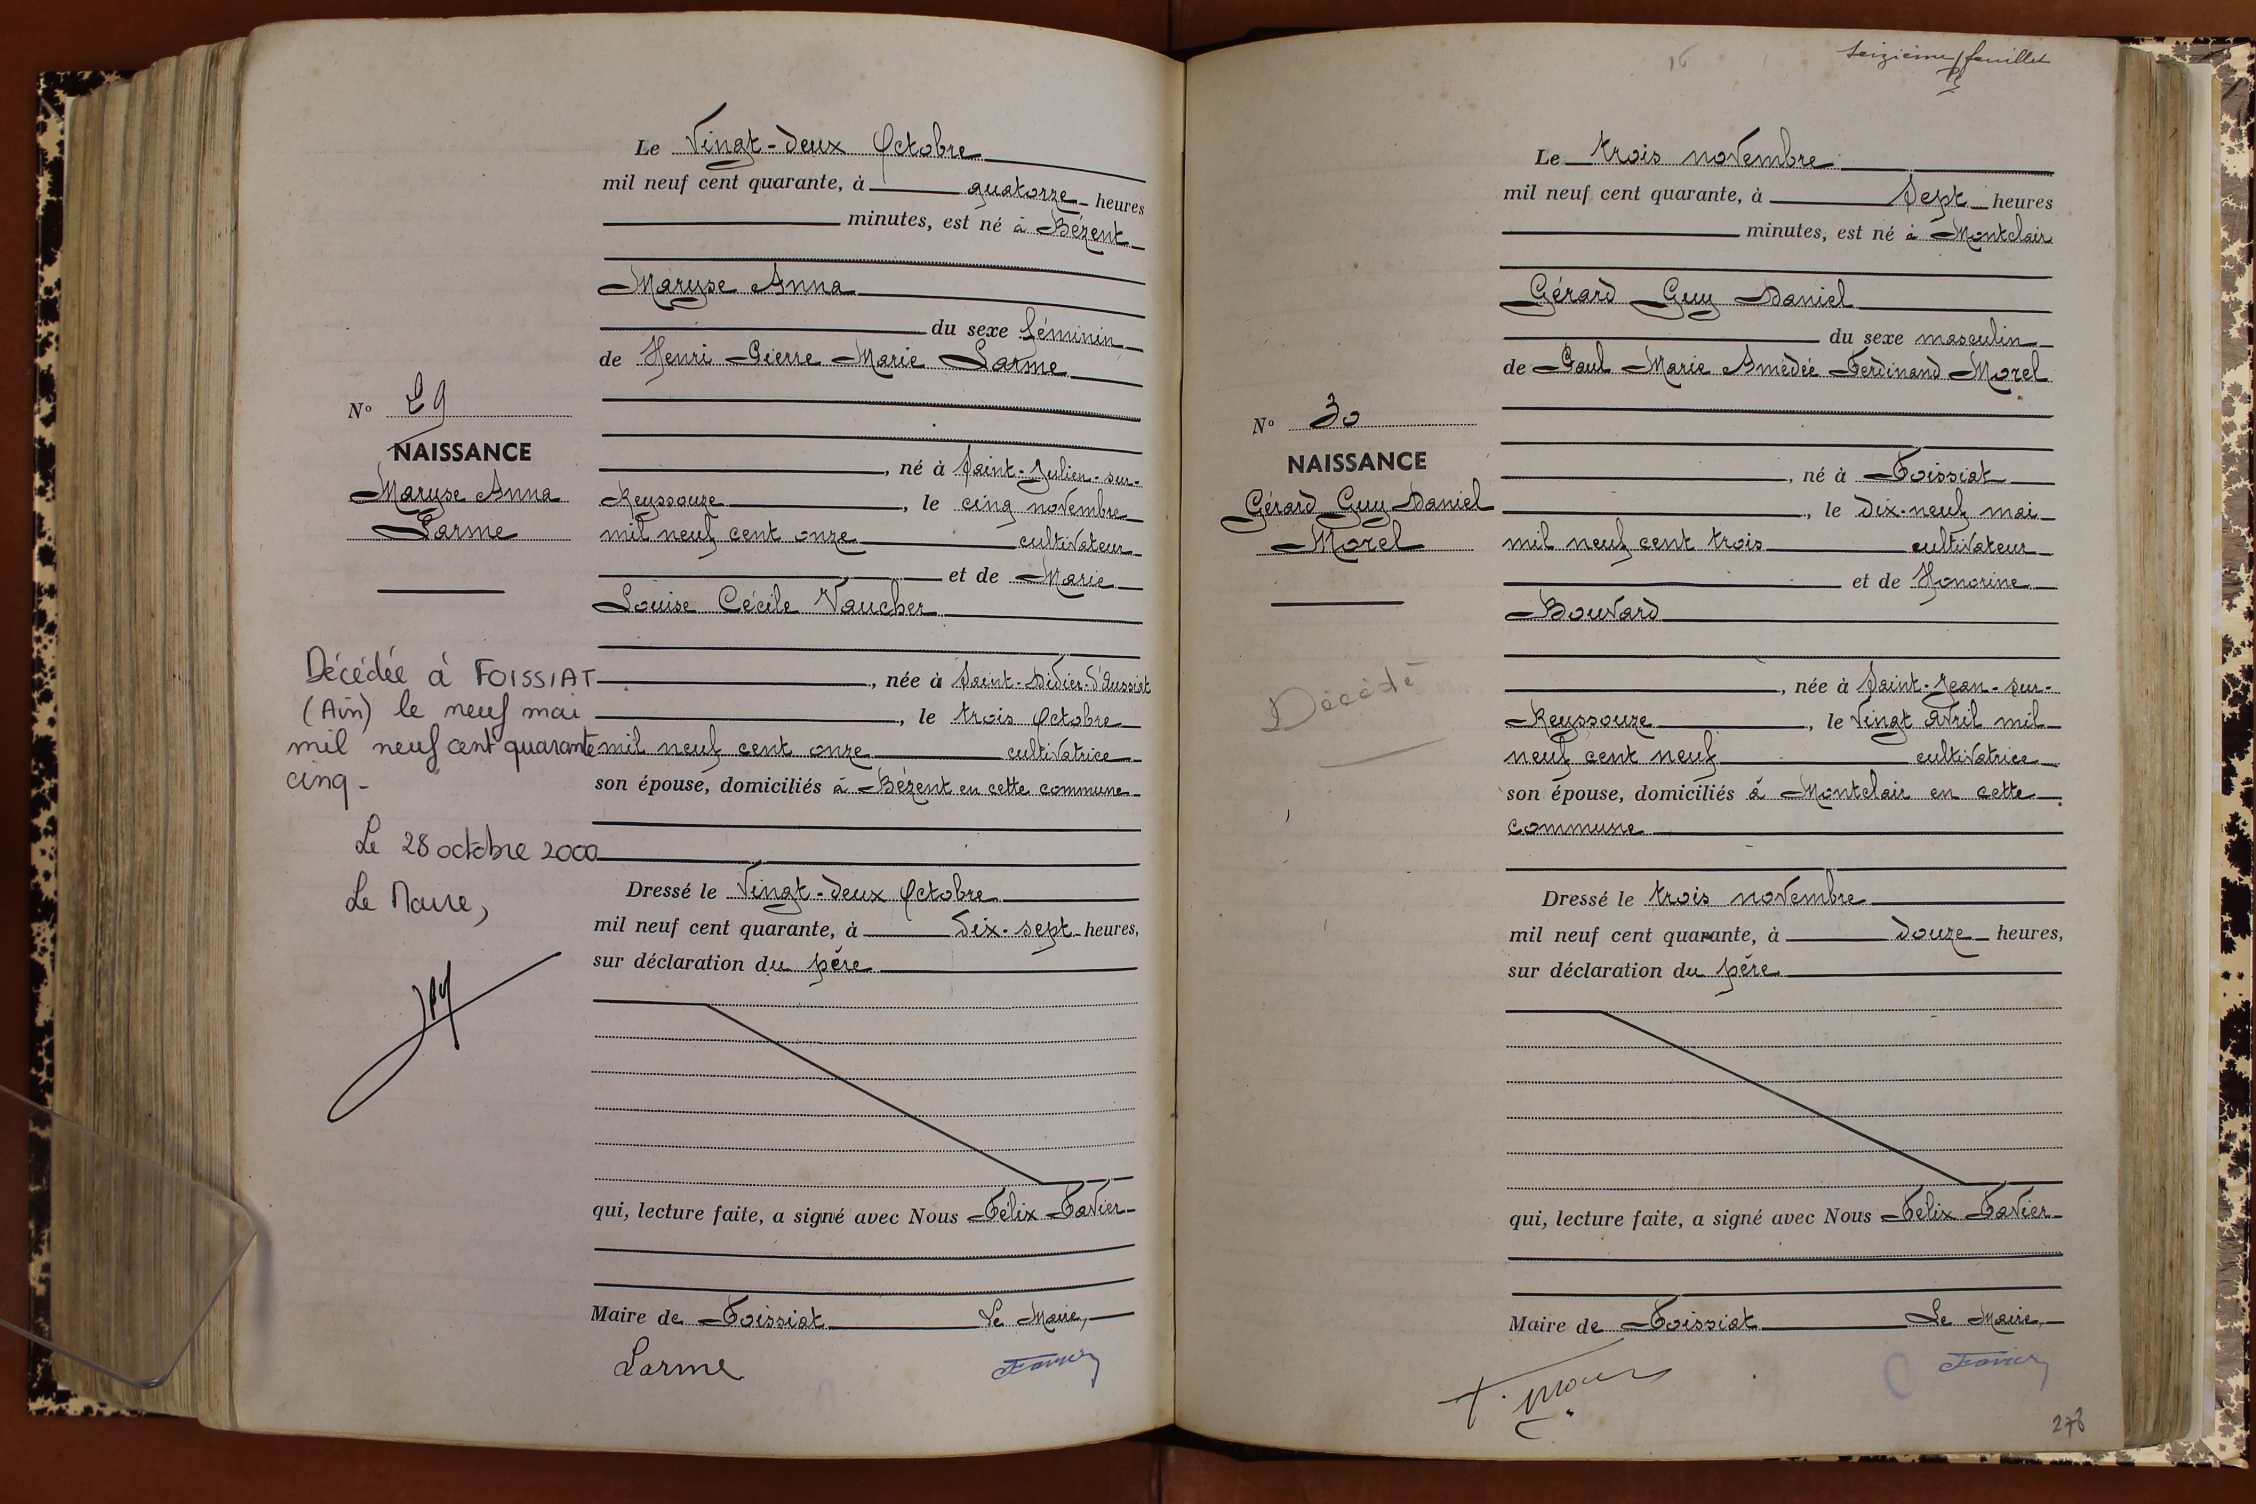 Le Vingt-deux Octobre
mil neuf cent quarante, à quatorze heures
minutes, est né à Bézent
Maryse Anna
du sexe féminin
de Henri Pierre Marie Larme
N° 29
NAISSANCE
Maryse Anna
Larme
, né à Saint-Julien-sur-
Reyssouze, le cinq novembre
mil neuf cent onze cultivateur
et de Marie
Louise Cécile Vaucher
, née à Saint-Didier-d'Aussiat
, le trois Octobre
mil neuf cent onze cultivatrice
son épouse, domiciliés à Bézent en cette commune
Décédée à FOISSIAT
(Ain) le neuf mai
mil neuf cent quarante
cinq-
Le 28 octobre 2000
Le Maire,
Dressé le Vingt-deux Octobre
mil neuf cent quarante, à dix-sept heures,
sur déclaration du père
qui, lecture faite, a signé avec Nous Félix Favier
Maire de Foissiat Le Maire,
Larme Favier
seizième feuillet
16
Le trois novembre
mil neuf cent quarante, à Sept heures
minutes, est né à Montclair
Gérard Guy Daniel
du sexe masculin
de Paul Marie Amédée Ferdinand Morel
N° 30
NAISSANCE
Gérard Guy Daniel
Morel
, né à Foissiat
, le dix-neuf mai
mil neuf cent trois cultivateur
et de Honorine
Bouvard
, née à Saint-Jean-sur-
Reyssouze, le vingt avril mil
neuf cent neuf cultivatrice
son épouse, domiciliés à Montclair en cette
commune
Décédé
Dressé le trois novembre
mil neuf cent quarante, à douze heures,
sur déclaration du père
qui, lecture faite, a signé avec Nous Félix Favier
Maire de Foissiat Le Maire,
Favier
278